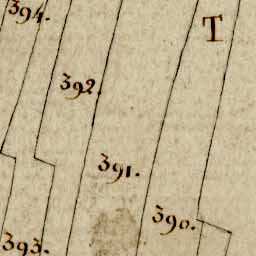 394.
T
392.
391.
390.
393.